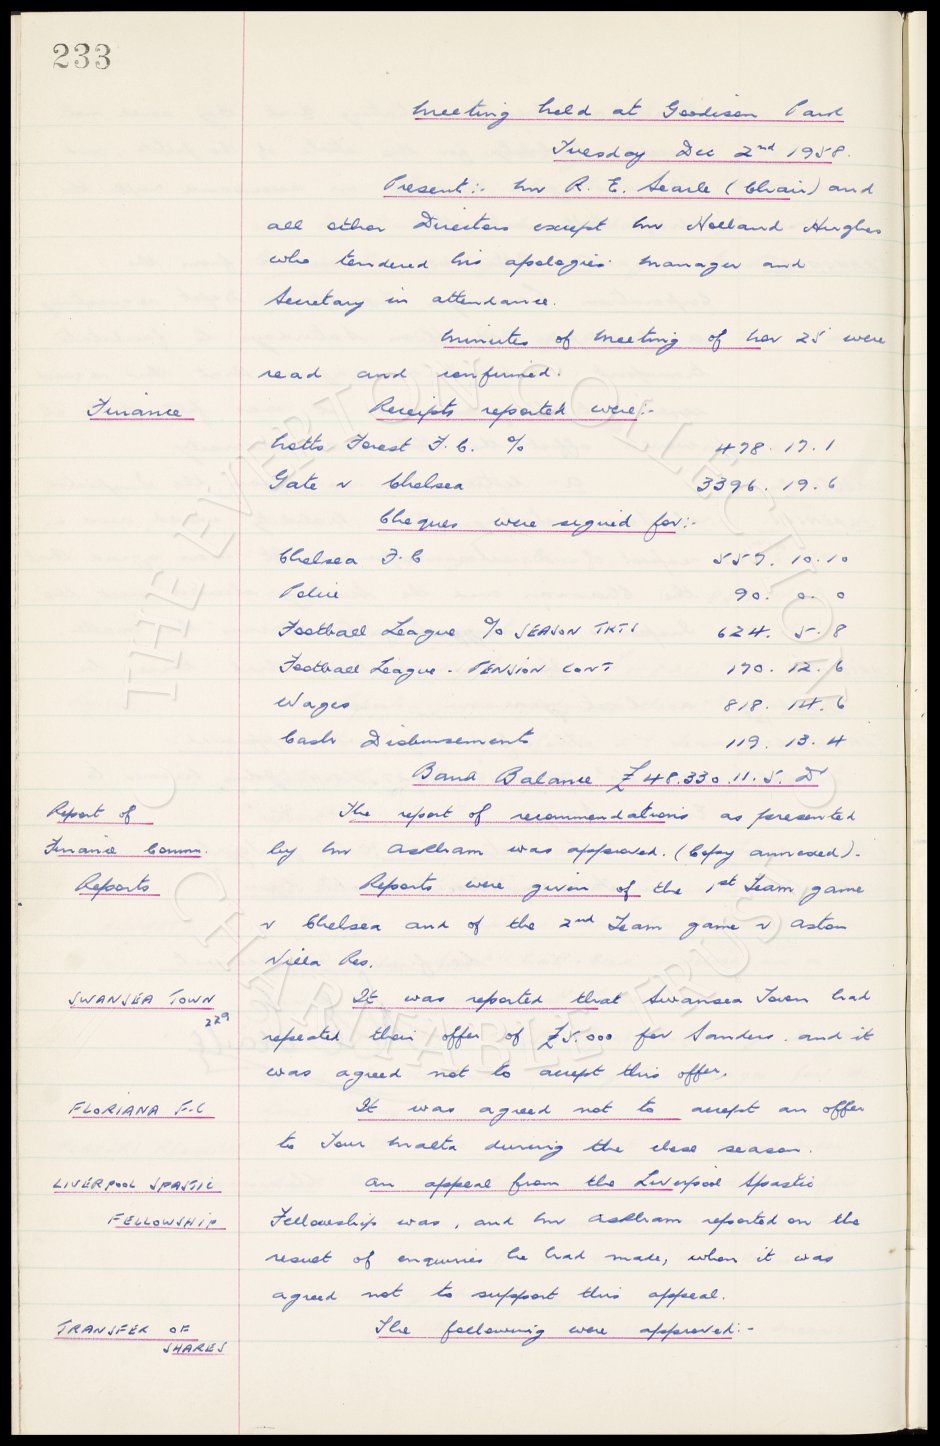 233
Meeting held at Goodison Park
Tuesday Dec 2nd 1958.
Present:- Mr R. E. Searle (Chair) and
all other Directors except Mr Holland Hughes
who tendered his apologies. Manager and
Secretary in attendance.
Minutes of Meeting of Nov 25 were
read and confirmed.
Finance
Receipts reported were:-
Notts Forest F.C. %
478. 17. 1
Gate v Chelsea
3396. 19. 6
Cheques were signed for:-
Chelsea F.C
557. 10. 10
Police
90. 0. 0
Football League % SEASON TKTS
624. 5. 8
Football League - PENSION CONT
170. 12. 6
Wages
818. 14. 6
Cash Disbursements
119. 13. 4
Bank Balance £48.330.11.5. Dr
Report of
Finance Comm.
The report of recommendations as presented
by Mr Askham was approved. (Copy annexed).
Reports
Reports were given of the 1st Team game
v Chelsea and of the 2nd Team game v Aston
Villa Res.
SWANSEA TOWN
229
It was reported that Swansea Town had
repeated their offer of £5.000 for Sanders. and it
was agreed not to accept this offer.
FLORIANA F.C
It was agreed not to accept an offer
to Tour Malta during the close season.
LIVERPOOL SPASTIC
FELLOWSHIP
An appeal from the Liverpool Spastic
Fellowship was, and Mr Askham reported on the
result of enquiries he had made, when it was
agreed not to support this appeal.
TRANSFER OF
SHARES
The following were approved:-
© THE EVERTON COLLECTION
CHARITABLE TRUST